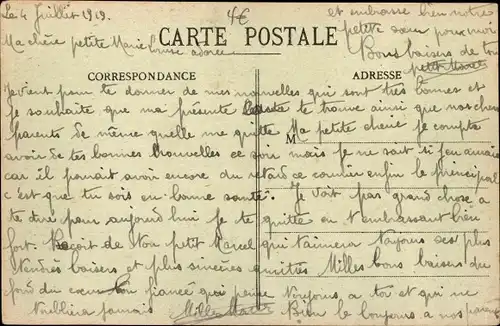 Le 4 Juillet 1919.
4€
et embrasse bien notres
petite sœur pour moi
Bons baisers de ton
petit
Ma chère petite Marie Louise adorée
CARTE POSTALE
CORRESPONDANCE
ADRESSE
Je vient pour te donner de mes nouvelles qui sont très bonnes et
je souhaite que ma présente te trouve ainsi que nos chers
parents de même quelle me quitte. Ma petite cherie je compte
M
avoir de tes bonnes nouvelles ce soir mais je ne sait si j'en aurai
car il pourait avoir encore du retard ce courrier enfin le principal
c'est que tu sois en bonne santé. Je voit pas grand chose a
te dire pour aujourd'hui je te quitte en t'embrassant bien
fort. Reçoit de ton petit Marcel qui t'aimera toujours ses plus
tendres baisers et plus sincères amitiés Milles bons baisers du
fond du cœur ton fiancé qui pense toujours a toi et qui ne
t'oubliera jamais
Bien le bonjours a nos parents